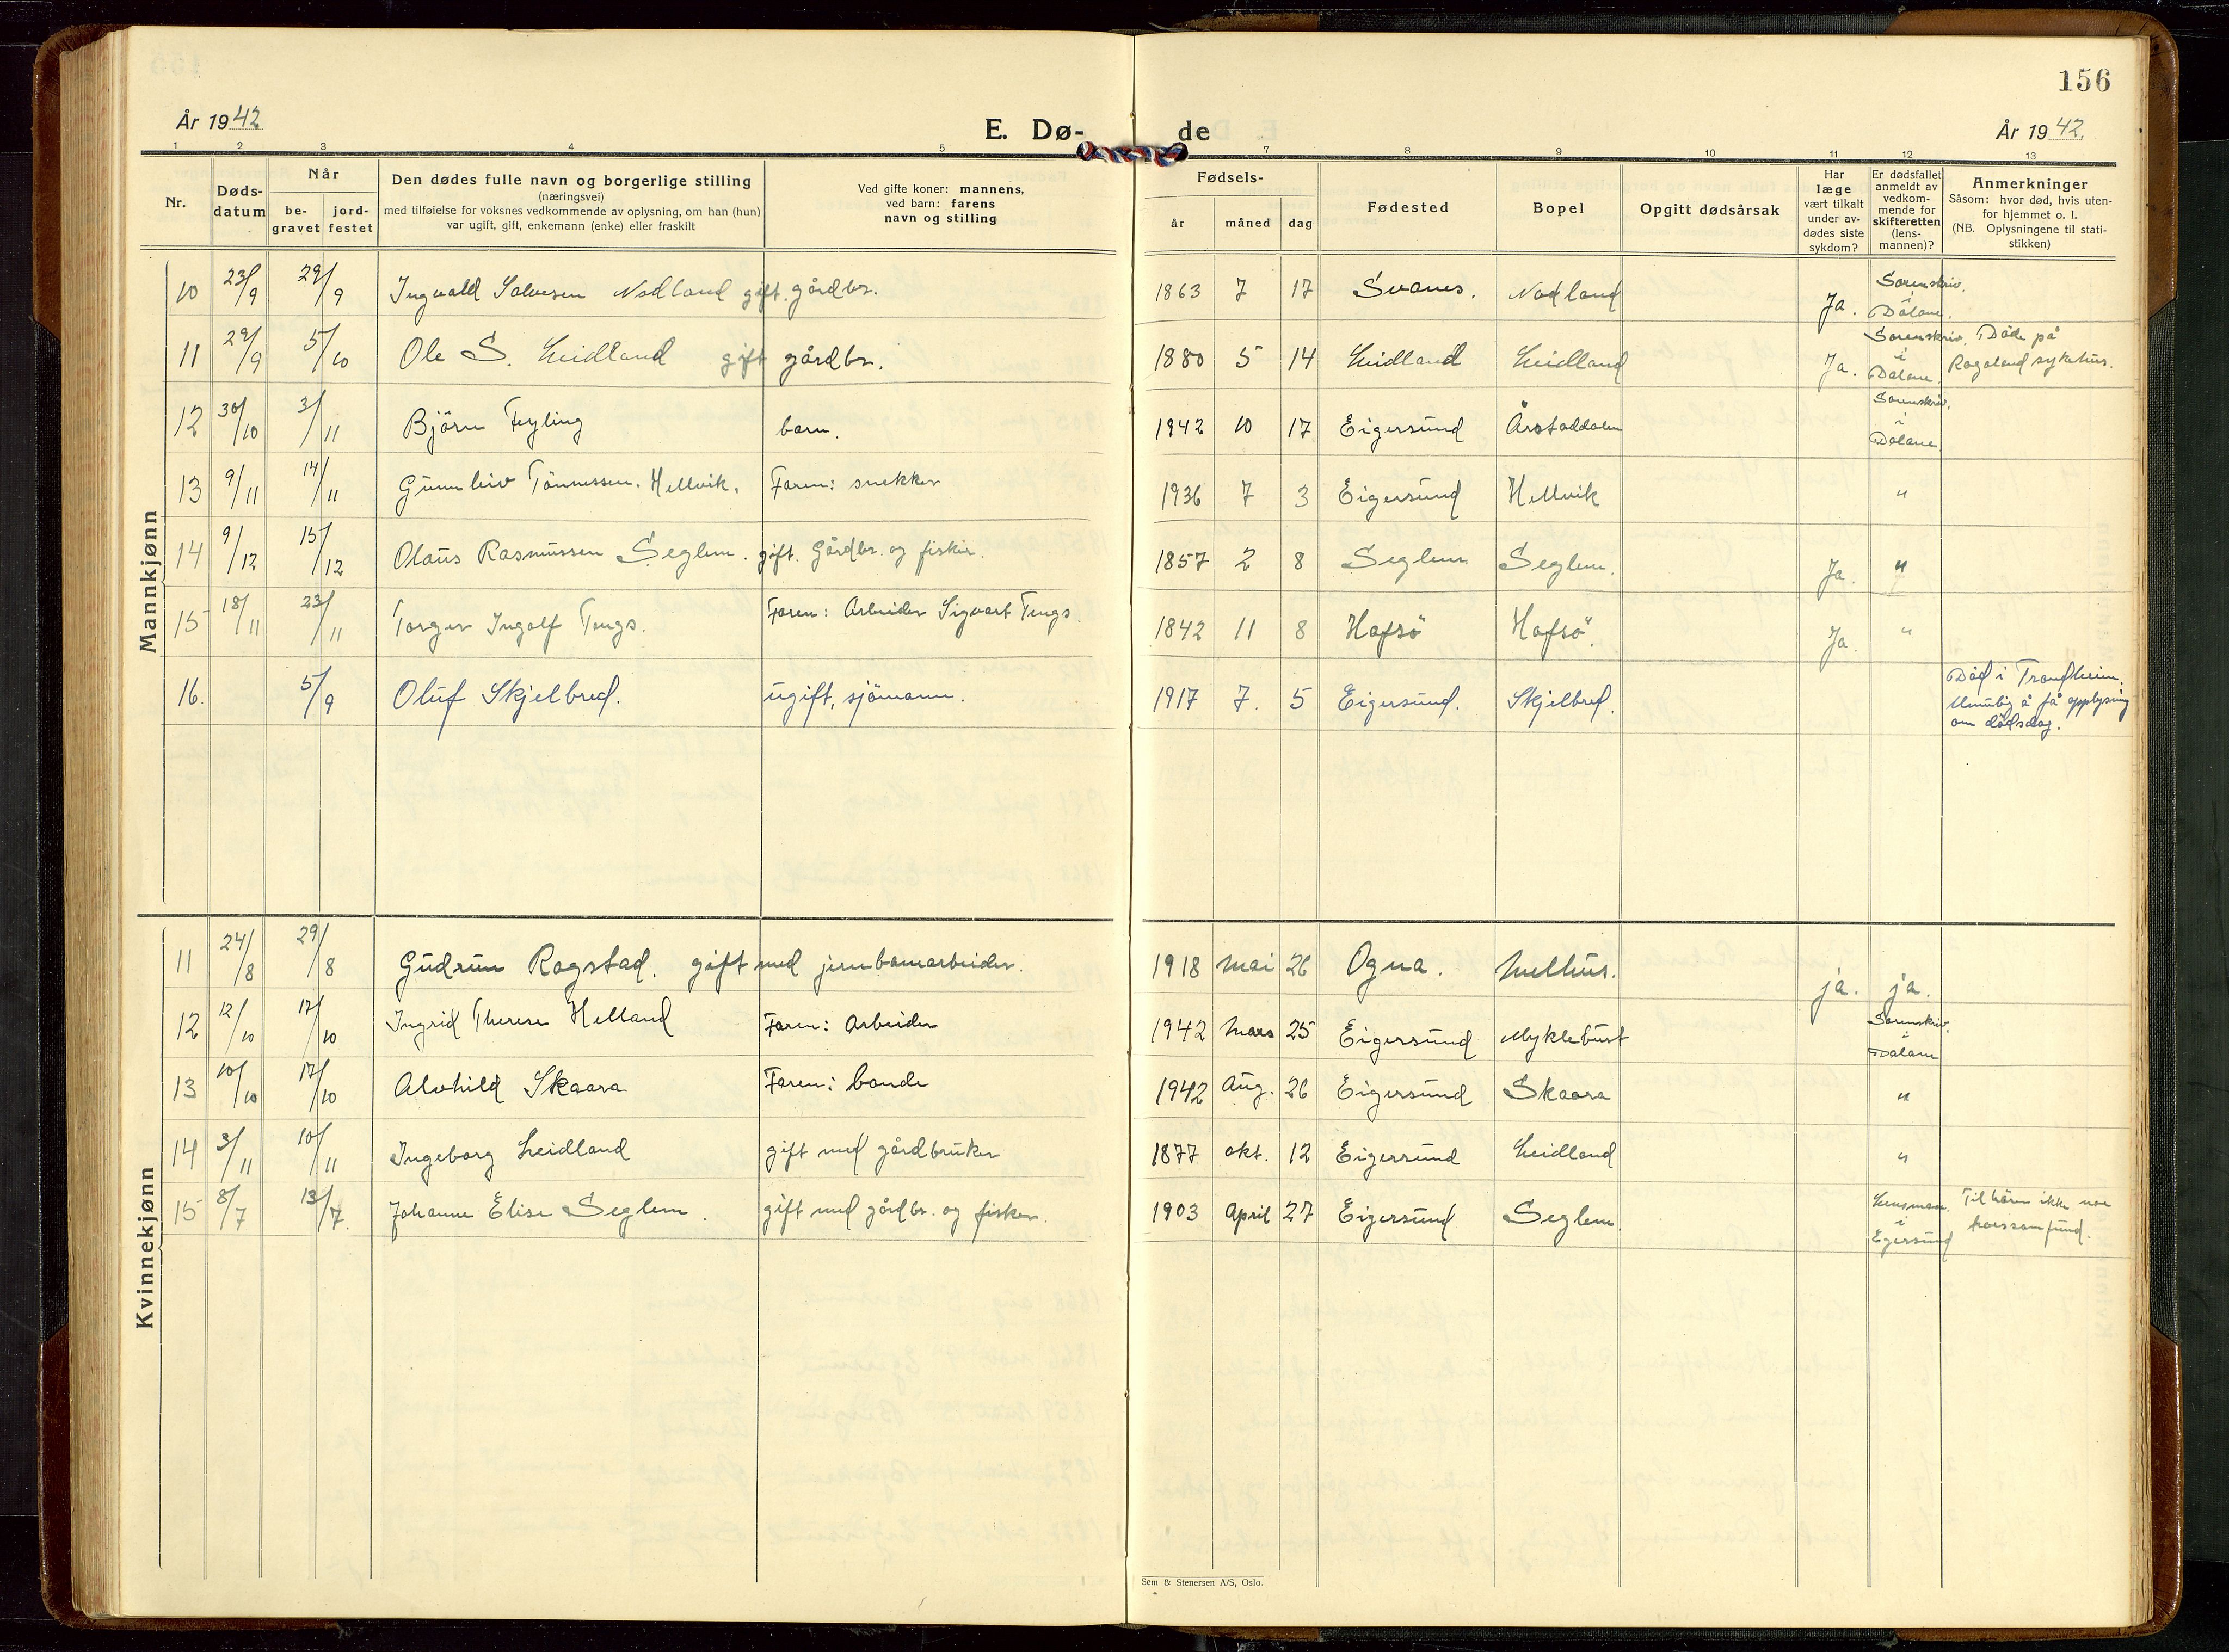 156
År 1942
E. Dø- de
År 1942.
1 2 3 4 5 7 8 9 10 11 12 13
Nr.
Døds-
datum
Når
be-
gravet
jord-
festet
Den dødes fulle navn og borgerlige stilling
(næringsvei)
med tilføielse for voksnes vedkommende av oplysning, om han (hun)
var ugift, gift, enkemann (enke) eller fraskilt
Ved gifte koner: mannens,
ved barn: farens
navn og stilling
Fødsels-
år måned dag
Fødested
Bopel
Opgitt dødsårsak
Har
læge
vært tilkalt
under av-
dødes siste
sykdom?
Er dødsfallet
anmeldt av
vedkom-
mende for
skifteretten
(lens-
mannen)?
Anmerkninger
Såsom: hvor død, hvis uten-
for hjemmet o. l.
(NB. Oplysningene til stati-
stikken)
Mannkjønn
10 23/9 29/9 Ingvald Salvesen Nodland gift. gårdbr. 1863 7 17 Svanes. Nodland Ja. Sorenskriv. i Dalane.
11 29/9 5/10 Ole S. Leidland gift gårdbr. 1880 5 14 Leidland Leidland Ja. Sorenskriv. i Dalane. Döde på
Rogaland sykehus.
12 30/10 3/11 Björn Feyling barn. 1942 10 17 Eigersund Årstaddalen Sorenskriv. i Dalane
13 9/11 14/11 Gunnleiv Tönnessen. Hellvik. Faren: snekker 1936 7 3 Eigersund Hellvik "
14 9/12 15/12 Olaus Rasmussen Seglem. gift. Gårdbr. og fisker. 1857 2 8 Seglem Seglem. Ja. "
15 18/11 23/11 Torger Ingolf Tengs. Faren: Arbeider Sigvart Tengs. 1842 11 8 Hafsö Hafsö. Ja. "
16. 5/9 Oluf Skjelbred. ugift, sjömann. 1917 7. 5 Eigersund. Skjelbred. Död i Trondheim.
Umulig å få opplysning
om dödsdag.
Kvinnekjønn
11 24/8 29/8 Gudrun Rogstad. gift med jernbanearbeider. 1918 mai 26 Ogna. Melhus. ja. ja.
12 12/10 17/10 Ingrid Therese Helland Faren: Arbeider 1942 Mars 25 Eigersund Myklebust Sorenskriv. i Dalane
13 10/10 17/10 Alvhild Skaara Faren: bonde 1942 Aug. 26 Eigersund Skaara "
14 3/11 10/11 Ingeborg Leidland gift med gårdbruker 1877 okt. 12 Eigersund Leidland "
15 8/7 13/7. Johanne Elise Seglem. gift med gårdbr. og fisker. 1903 April 27 Eigersund Seglem. Lensmann. i Egersund Tilhörer ikke noe
trossamfund.
Sem & Stenersen A/S, Oslo.